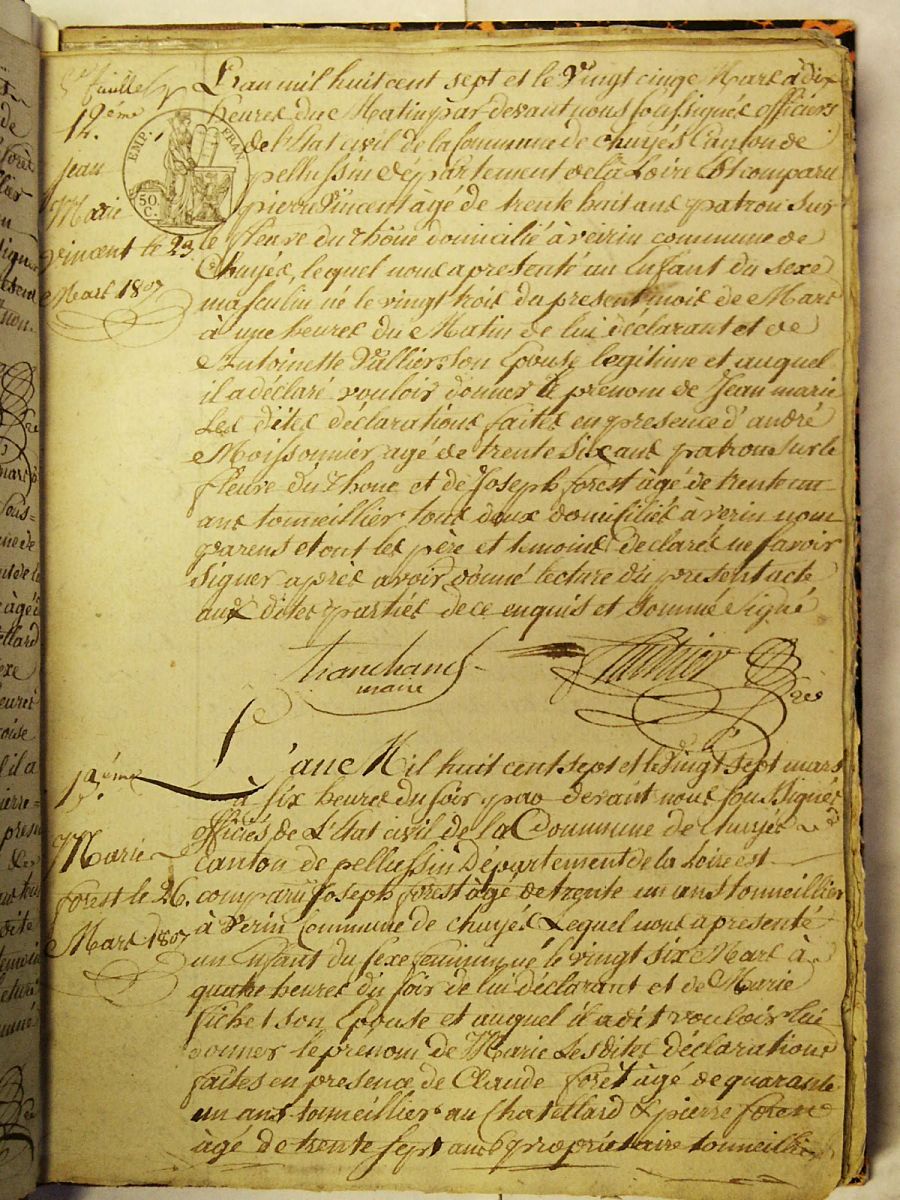 feuille
12.éme
jean
Marie
vincent le 23
Mars 1807
EMP. FRAN
50 C.
L'an mil huit cent sept et le Vingt cinqe Mars à dix
heures du Matin par devant nous soussignés officiers
de l'Etat civil de la Commune de Chuyés Canton de
pellussin Département de la Loire Est comparu
pierre Vincent âgé de trente huit ans patron sur
le fleuve du Rhône domicilié à verin commune de
Chuyés, lequel nous a presenté un enfant du sexe
masculin né le vingt trois du present mois de Mars
à une heures du Matin de lui déclarant et de
Antoinette Vallier son Epouse legitime et auquel
il a déclaré vouloir donner le prenom de Jean marie
Les dites déclarations faites en presence d'andré
Moissonnier agé de trente six ans patron sur le
fleuve du Rhone et de Joseph forest âgé de trente un
ans tonneillier tous deux domiciliés à verin non
parens et ont les père et temoins declarés ne savoir
signer après avoir donné lecture du present acte
aux dites parties de ce enquis et sommé signé
tranchand
maire
13.éme
Marie
forest le 26.
Mars 1807
L'ane Mil huit cent sept et le vingt sept mars
à six heures du soir par devant nous soussignés
officiés de L'Etat civil de la Commune de Chuyés
canton de pellussin Département de la Loire est
comparu Joseph forest âgé de trente un ans tonneillier
à Verin Commune de chuyés Lequel nous a presenté
un Enfant du sexe feminin né le vingt six Mars à
quatre heures du soir de lui déclarant et de Marie
fichet son Epouse et auquel il a dit vouloir lui
donner le prenom de Marie Les dites déclarations
faites en presence de Claude forêt âgé de quarante
un ans tonneillier au Chatellard & pierre foren
âgé de trente sept ans propriétaire tonneillier